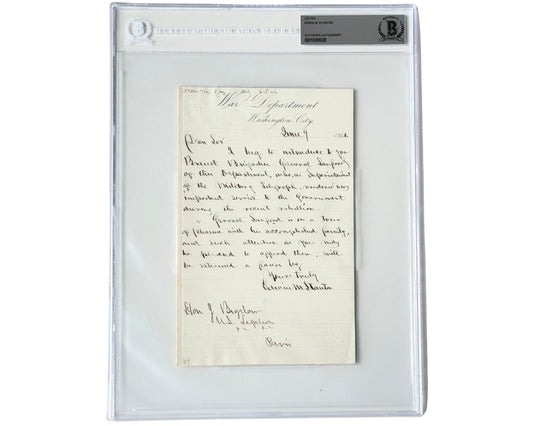 BECKETT AUTHENTICATION SERVICES
LETTER
EDWIN M. STANTON
AUTHENTIC AUTOGRAPH
BECKETT
War Department
Washington City
June 9
Dear Sir
I beg to introduce to you
Brevet Brigadier General
of this Department, who, as Superintendent
of the Military Telegraph, rendered very
important service to the Government
during the recent rebellion.
General is on a tour
of pleasure with his accomplished family,
and such attention as you may
be pleased to afford them, will
be esteemed a favor by
Yours truly
Edwin M Stanton
Hon J. Bigelow
U.S. Legation
Paris